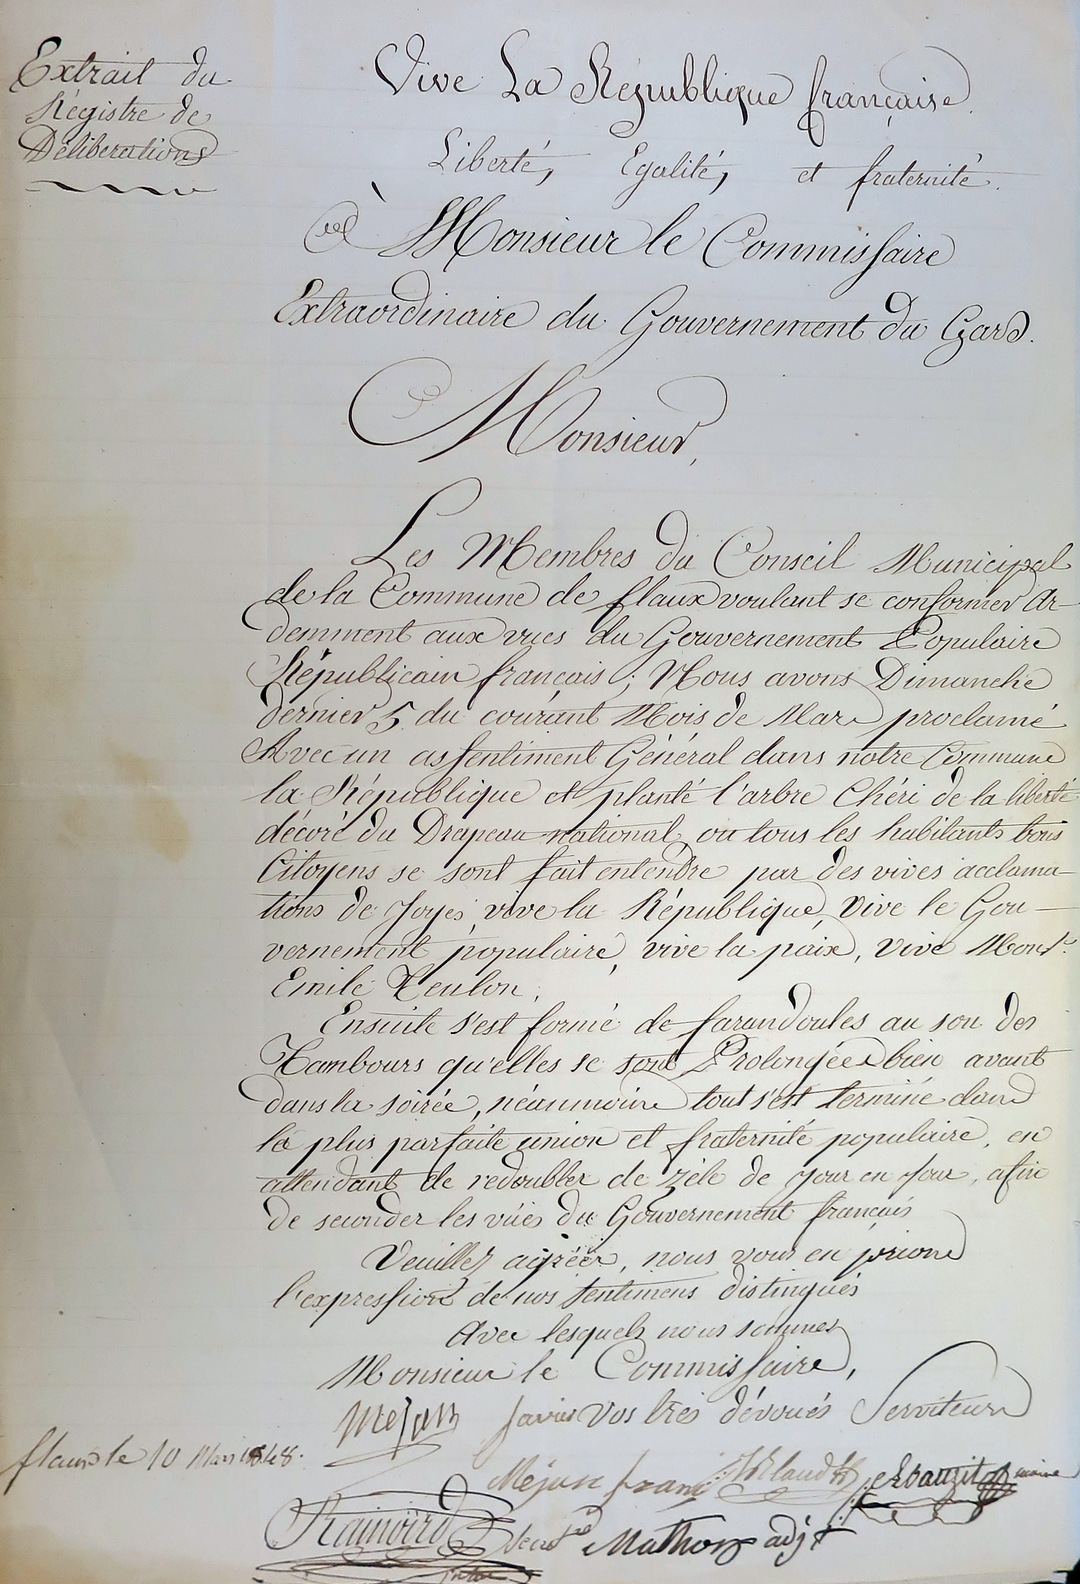 Extrait du
Régistre de
Déliberations
Vive La République française.
Liberté, Egalité, et fraternité.
à Monsieur le Commissaire
Extraordinaire du Gouvernement du Gard.
Monsieur,
Les Membres du Conseil Municipal
de la Commune de flaux voulant se conformer Ar-
demment aux vues du Gouvernement Populaire
Républicain français ; Nous avons Dimanche
dernier 5 du courant Mois de Mars proclamé
Avec un assentiment Général dans notre Commune
la République et planté l'arbre Chéri de la liberté
décoré du Drapeau national, ou tous les habitants bons
Citoyens se sont fait entendre par des vives acclama-
tions de Joyes, vive la République, Vive le Gou-
vernement populaire, vive la paix, Vive Mons.r
Emile Teulon,
Ensuite s'est formé de farandoules au son des
Tambours qu'elles se sont Prolongées bien avant
dans la soirée, néanmoins tout s'est terminé dans
la plus parfaite union et fraternité populaire, en
attendant de redoubler de zèle de Jour en Jour, afin
de seconder les vües du Gouvernement français
Veuillez agréer, nous vous en prions
l'expression de nos sentimens distingués
Avec lesquels nous sommes
Monsieur le Commissaire,
Mejan Vos très dévoués Serviteurs
flaux le 10 Mars 1848.
Méjan maire
Mathon adjt